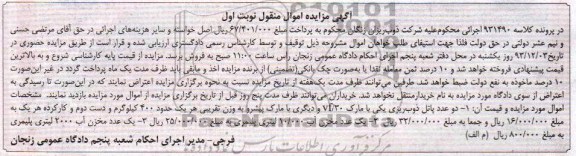 آگهی مزایده اموال منقول نوبت اول
در پرونده کلاسه ۹۳۱۴۹۰ اجرائی محکوم‌علیه شرکت ذوب‌ریزان زنگان محکوم به پرداخت مبلغ ۶۷/۴۰۱/۰۰۰ ریال اصل خواسته و سایر هزینه‌های اجرائی در حق آقای مرتضی حسنی
و نیم عشر دولتی در حق دولت فلذا جهت استیفای طلب خواهان اموال مشروحه ذیل توقیف و توسط کارشناس رسمی دادگستری ارزیابی شده و قرار است از طریق مزایده حضوری در
تاریخ ۹۳/۱۲/۰۳ روز یکشنبه در محل دفتر شعبه پنجم اجرای احکام دادگاه عمومی زنجان راس ساعت ۱۱/۰۰ صبح به فروش برسد. مزایده از قیمت پایه کارشناسی شروع و به بالاترین
قیمت پیشنهادی فروخته خواهد شد و ۱۰ درصد ثمن معامله نقدا یا بصورت چک بانکی (تضمینی) از برنده مزایده اخذ و مابقی باید ظرف مدت یک ماه پرداخت گردد در غیر این‌صورت
۱۰ درصد ماخوذه به نفع دولت ضبط خواهد شد. طرفین می‌توانند ظرف مدت یک‌هفته از تاریخ مزایده نسبت به نحوه برگزاری مزایده اعتراض نمایند که در این‌صورت تا رسیدگی به
اعتراض از سوی دادگاه مورد مزایده به نام خریدار منتقل نخواهد شد. خریداران می‌توانند ظرف مدت پنج روز قبل از تاریخ برگزاری مزایده از اموال مورد بازدید نمایند. مشخصات
اموال مورد مزایده و قیمت آن: ۱- دو عدد پاتل ذوب‌ریزی یکی با مارک ۷۱/۳۰ و دیگری با مارک پیشرو به وزن تقریبی هر یک حدود ۴۰۰ کیلوگرم و دست دوم و کارکرده هر یک به
مبلغ ۱۶/۰۰۰/۰۰۰ ریال و جمعا به مبلغ ۳۲/۰۰۰/۰۰۰ ریال ۲- یک عدد مخزن ۲۵/۰۰۰/۰۰۰ ریال ۳- یک عدد مخزن آب ۲۰۰۰ لیتری پلیمری
به مبلغ ۸۰۰/۰۰۰ ریال (م الف)
فرجی- مدیر اجرای احکام شعبه پنجم دادگاه عمومی زنجان